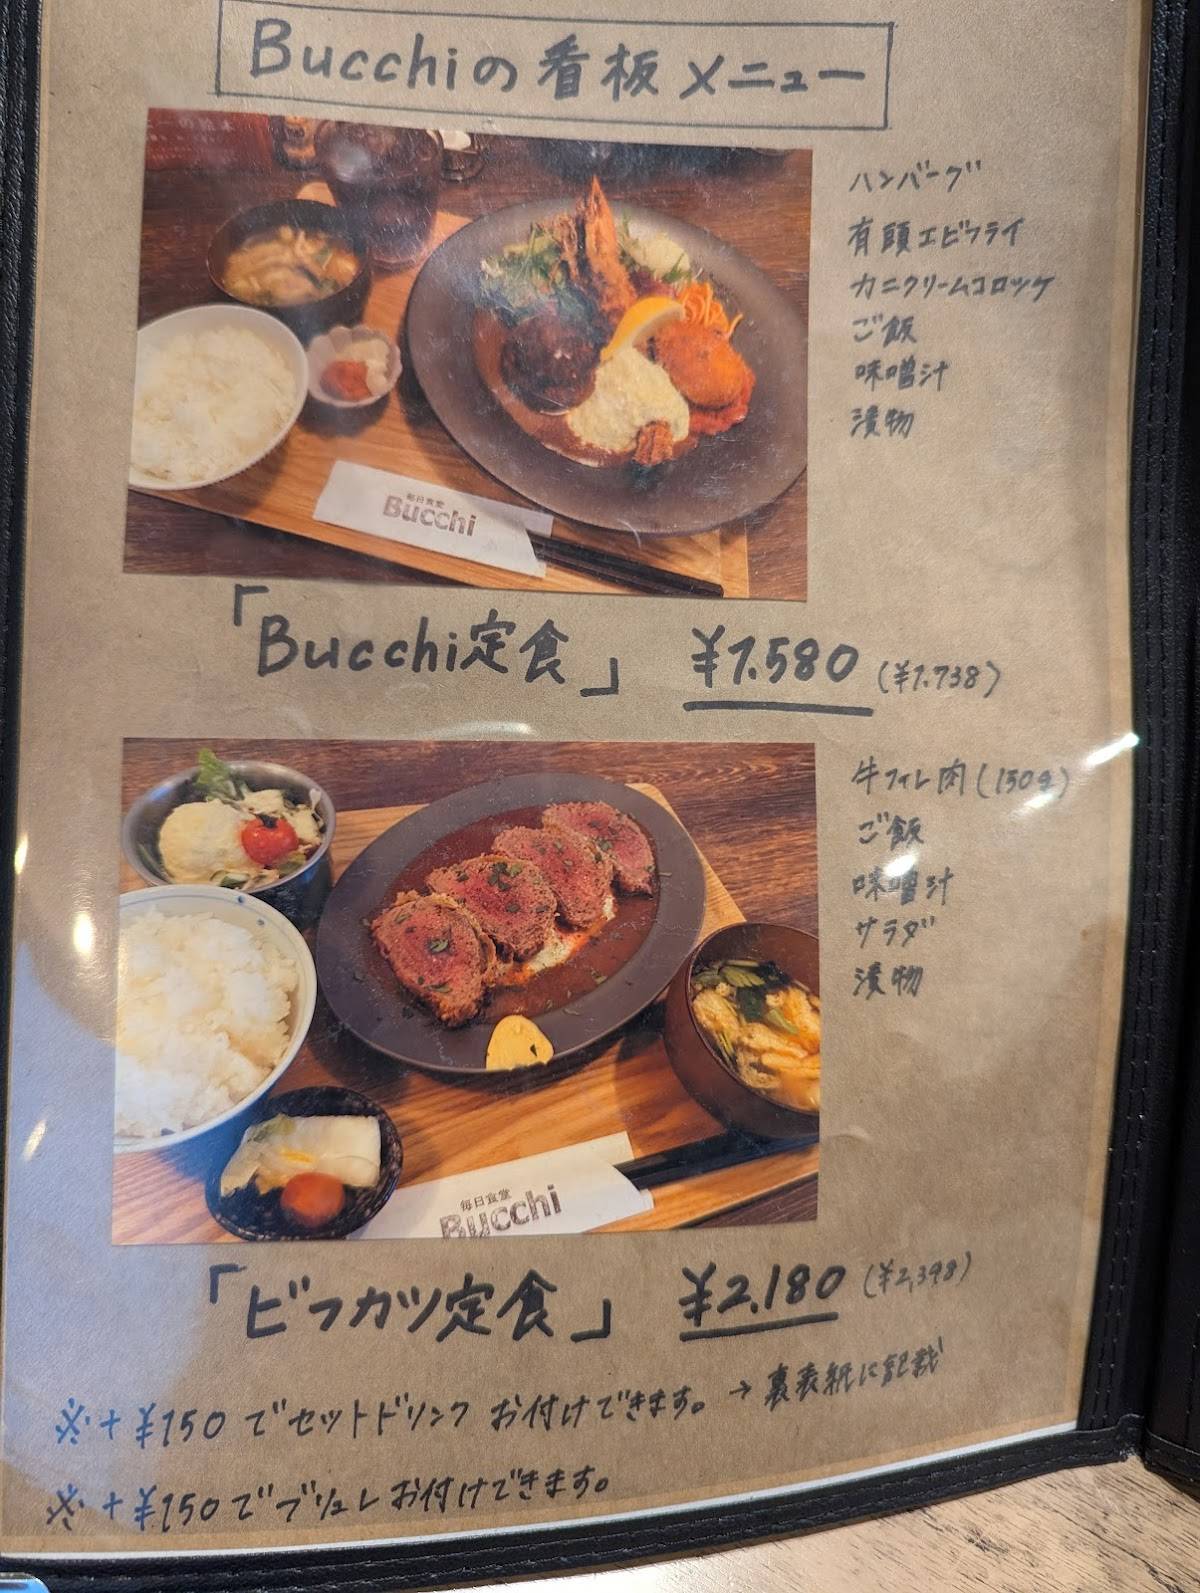 Bucchiの看板メニュー
ハンバーグ
有頭エビフライ
カニクリームコロッケ
ご飯
味噌汁
漬物
毎日食堂
Bucchi
「Bucchi定食」 ¥1.580 (¥1.738)
牛フィレ肉(150g)
ご飯
味噌汁
サラダ
漬物
毎日食堂
Bucchi
「ビフカツ定食」 ¥2.180 (¥2,398)
※+¥150でセットドリンクお付けできます。→裏表紙に記載
※+¥150でブリュレお付けできます。